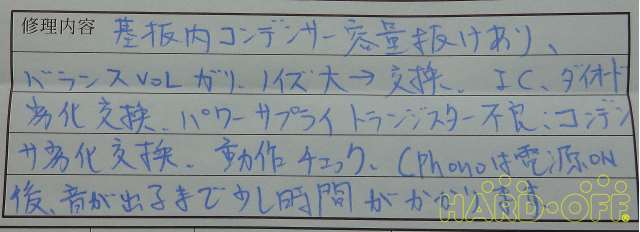 修理内容 基板内コンデンサー容量抜けあり、
バランスVOLガリ、ノイズ大→交換、IC、ダイオード
劣化交換、パワーサプライトランジスター不良、コンデン
サ劣化交換、動作チェック、(Phonoは電源ON
後、音が出るまで少し時間がかかります
HARD-OFF